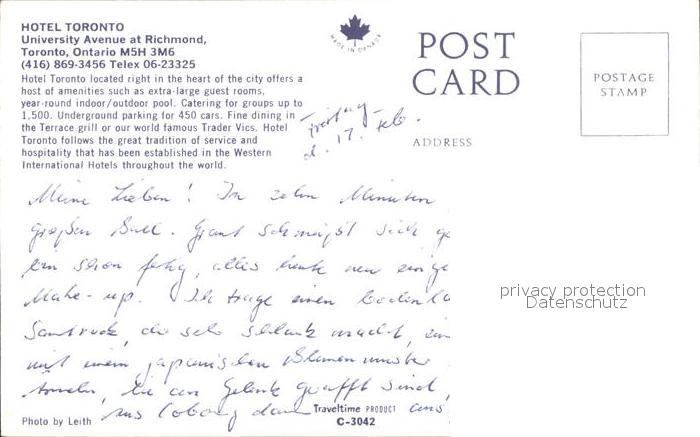 HOTEL TORONTO
University Avenue at Richmond,
Toronto, Ontario M5H 3M6
(416) 869-3456 Telex 06-23325
Hotel Toronto located right in the heart of the city offers a
host of amenities such as extra-large guest rooms,
year-round indoor/outdoor pool. Catering for groups up to
1,500. Underground parking for 450 cars. Fine dining in
the Terrace grill or our world famous Trader Vics. Hotel
Toronto follows the great tradition of service and
hospitality that has been established in the Western
International Hotels throughout the world.
MADE IN CANADA
POST
CARD
ADDRESS
POSTAGE
STAMP
Freitag
d. 17. Feb.
Meine Lieben! In zehn Minuten
großen Ball. schmeißt sich
bin schon fertig, alles
Make-up. Ich trage einen bodenla
die sehr schlank macht,
mit einem japanischen Blumenmuster
die am Gelenk gerafft sind,
aus
privacy protection
Datenschutz
Photo by Leith
Traveltime PRODUCT
C-3042